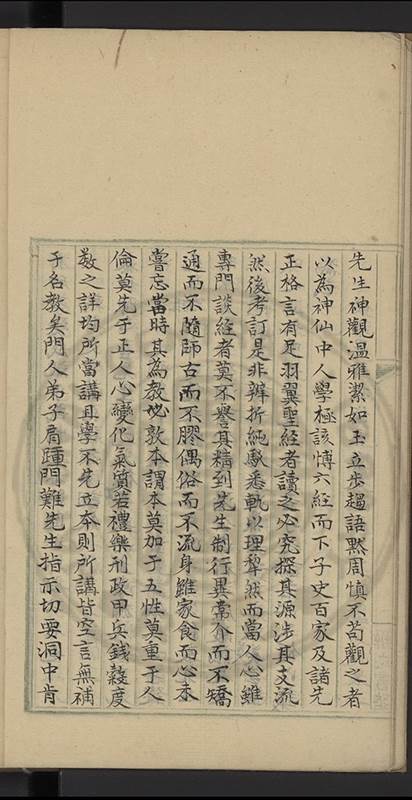 先生神觀溫雅潔如玉立步趨語默周慎不苟觀之者
以為神仙中人學極該博六經而下子史百家及諸先
正格言有足羽翼聖經者讀之必究探其源涉其支流
然後考訂是非辨折純駁悉軌以理犂然而當人心雖
專門談經者莫不譽其精到先生制行異常介而不矯
通而不隨師古而不膠偶俗而不流身雖家食而心未
嘗忘當時其為教必敦本謂本莫加于五性莫重于人
倫莫先于正人心變化氣質若禮樂刑政甲兵錢穀度
數之詳均所當講且學不先立本則所講皆空言無補
于名教矣門人弟子肩踵門難先生指示切要洞中肯